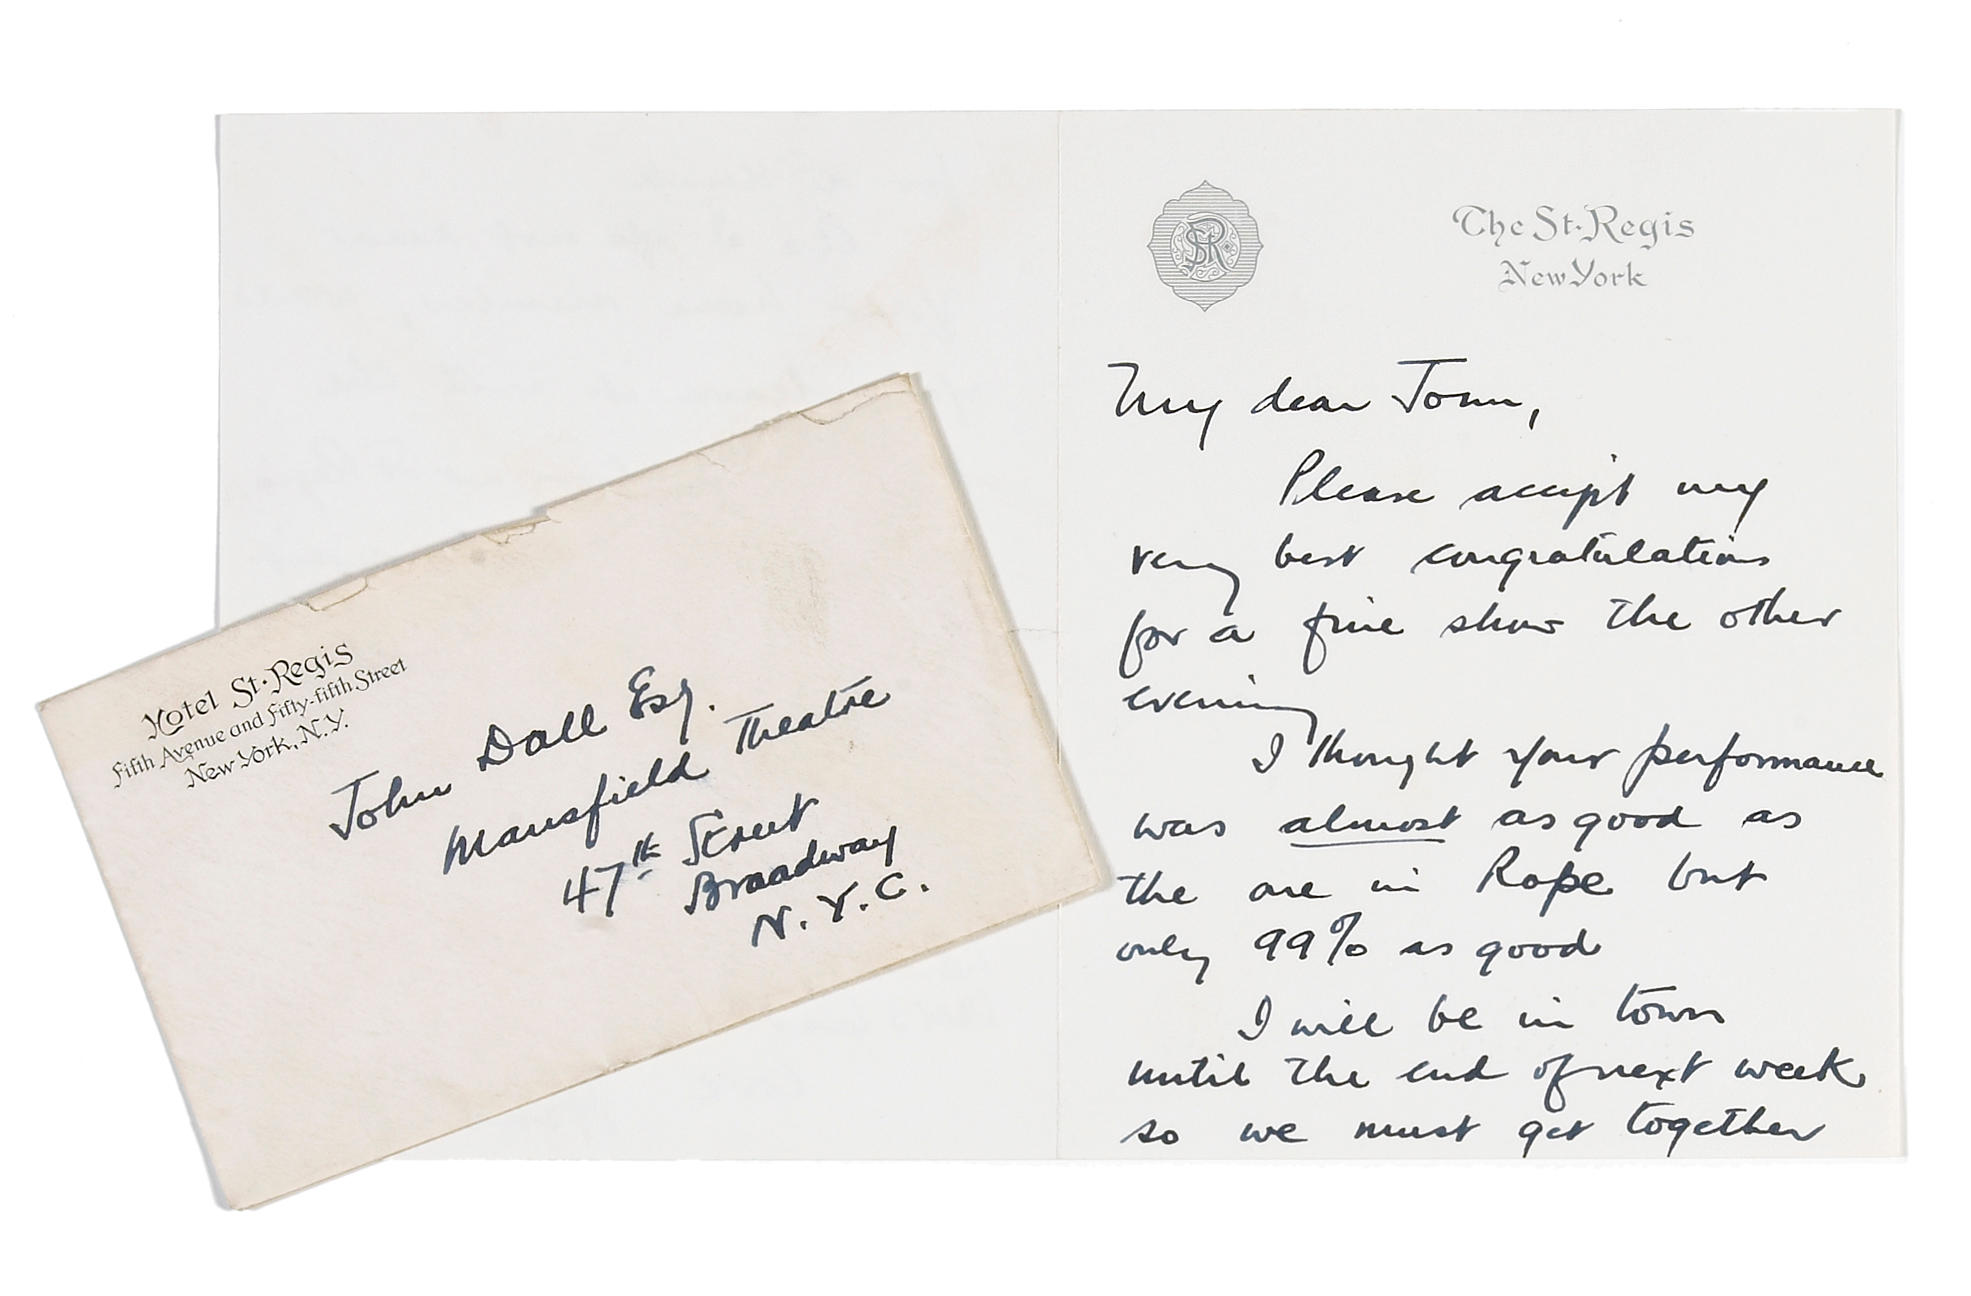 Hotel St. Regis
Fifth Avenue and Fifty-fifth Street
New York, N.Y.
John Dall Esq.
Mansfield Theatre
47th Street
Broadway
N.Y.C.
SR
The St. Regis
New York
My dear John,
Please accept my
very best congratulations
for a fine show the other
evening
I thought your performance
was almost as good as
the one in Rope but
only 99% as good
I will be in town
until the end of next week
so we must get together